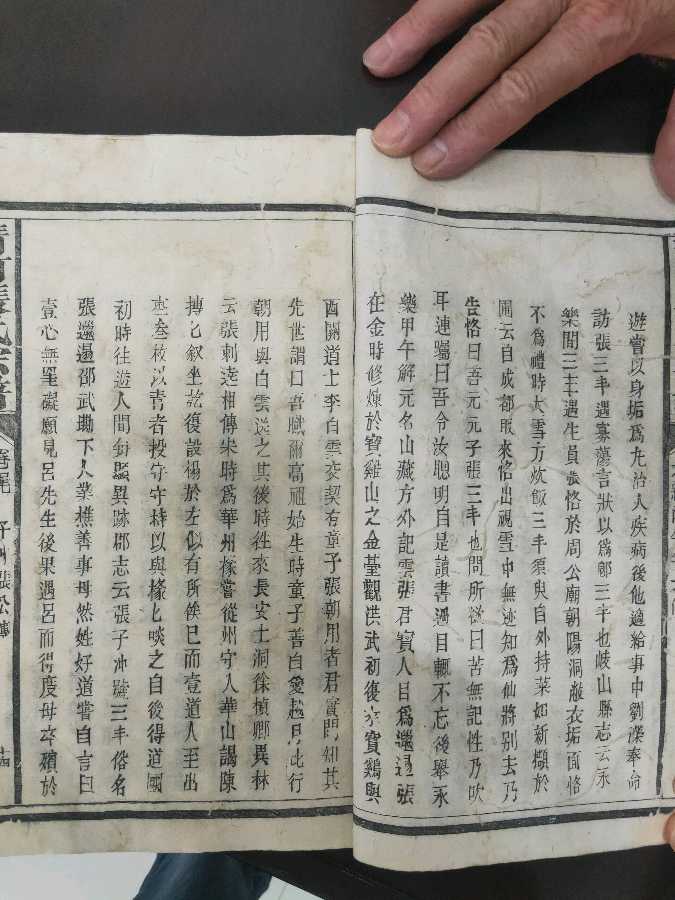 遊嘗以身垢爲丸治人疾病後他適給事中劉深奉命
訪張三丰遇寡薄言狀以爲郎三丰也岐山縣志云永
樂間三丰遇生員張恪於周公廟朝陽洞敝衣垢面恪
不爲禮時大雪方炊飯三丰須臾自外持菜如新擷於
圃云自成都來恪出視雪中無迹知爲仙將别去乃
告恪曰吾元元子張三丰也問所欲曰苦無記性乃吹
耳連囑曰吾令汝聰明自是讀書過目輒不忘後舉永
樂甲午解元名山藏方外記雲張君實人目爲邋遢張
在金時修煉於寶雞山之金臺觀洪武初復寶鷄與
西關道士李白雲交契有童子張朝用者君實問知其
先世謂曰吾識爾高祖始生時童子善自愛越月此行
朝用與白雲送之其後時徃來長安土洞徐楨卿異林
云張刺達相傳宋時爲華州掾嘗從州守入華山謁陳
摶匕叙坐茲復設褥於左似有所俟已而壹道人至出
棗叁枚以青者投守守持以與掾匕啖之自後得道國
初時往遊人間每顯異跡郡志云張子冲號三丰俗名
張邋遢邵武勛下人業樵善事母然姓好道嘗自言曰
壹心無罣礙願見呂先生後果遇呂而得度母卒殯於